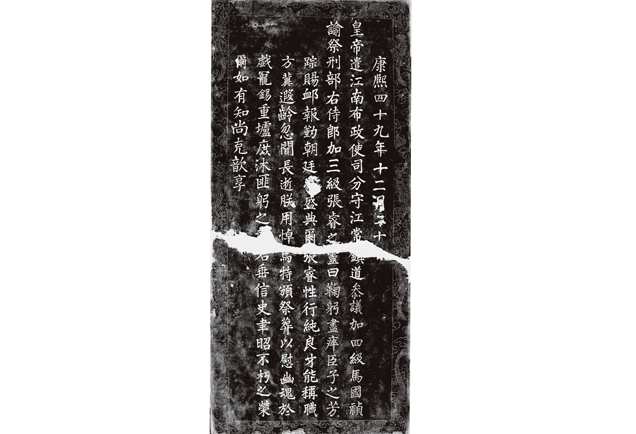 康熙四十九年十二月二十
皇帝遣江南布政使司分守江常鎮道叅議加四級馬國禎
諭祭刑部右侍郎加三級張睿之靈曰鞠躬盡瘁臣子之芳
踪賜卹報勤朝廷盛典爾張睿性行純良才能稱職
方冀遐齡忽聞長逝朕用悼焉特頒祭葬以慰幽魂於
戲寵錫重壚庶沐匪躬之名垂信史聿昭不朽之榮
爾如有知尚克歆享